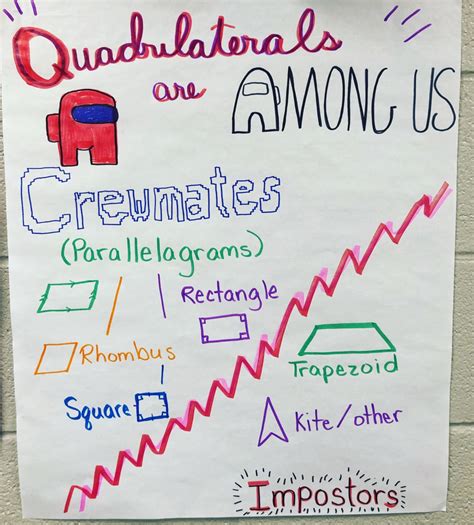 Quadrilaterals
are AMONG US
Crewmates
(Parallelagrams)
Rectangle
Rhombus
Trapezoid
Square
Kite/other
Impostors